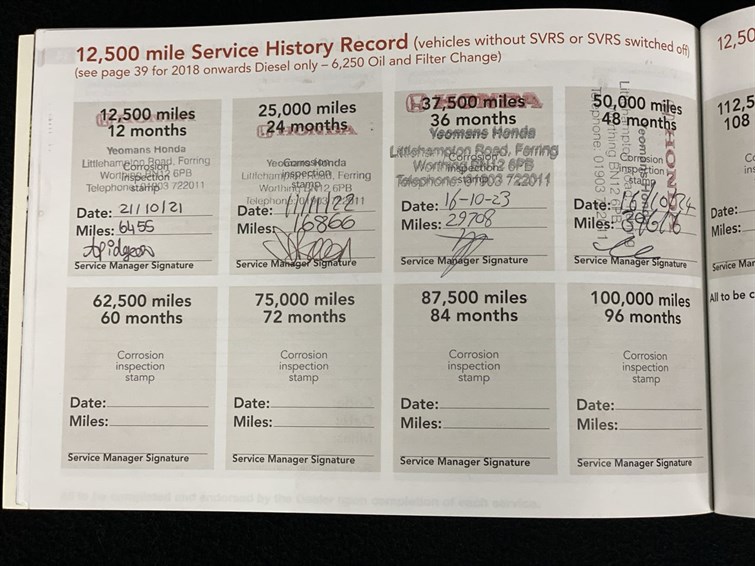 12,500 mile Service History Record (vehicles without SVRS or SVRS switched off)
(see page 39 for 2018 onwards Diesel only – 6,250 Oil and Filter Change)
12,500 miles
12 months
Yeomans Honda
Littlehampton Road, Ferring
Worthing BN12 6PB
Telephone 01903 722011
Corrosion
inspection
stamp
Date: 21/10/21
Miles: 6455
Service Manager Signature
25,000 miles
24 months
HONDA
Yeomans Honda
Littlehampton Road, Ferring
Worthing BN12 6PB
Telephone 01903 722011
Corrosion
inspection
stamp
Date: 1/11/22
Miles: 16866
Service Manager Signature
37,500 miles
36 months
HONDA
Yeomans Honda
Littlehampton Road, Ferring
Worthing BN12 6PB
Telephone 01903 722011
Corrosion
inspection
stamp
Date: 16-10-23
Miles: 29708
Service Manager Signature
50,000 miles
48 months
HONDA
Corrosion
inspection
stamp
Date:
Miles:
Service Manager Signature
62,500 miles
60 months
Corrosion
inspection
stamp
Date:
Miles:
Service Manager Signature
75,000 miles
72 months
Corrosion
inspection
stamp
Date:
Miles:
Service Manager Signature
87,500 miles
84 months
Corrosion
inspection
stamp
Date:
Miles:
Service Manager Signature
100,000 miles
96 months
Corrosion
inspection
stamp
Date:
Miles:
Service Manager Signature
12,50
112,5
108
Date:
Miles:
Service Mar
All to be c